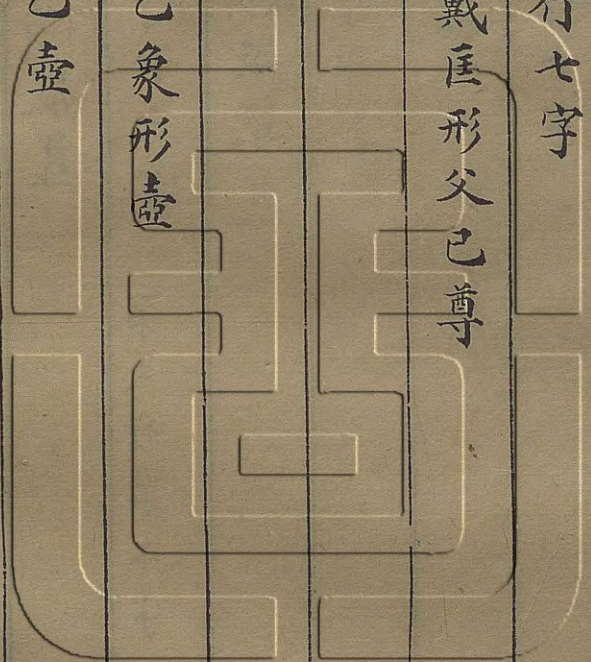 行七字
戴匡形父己尊
乙象形壺
乙壺